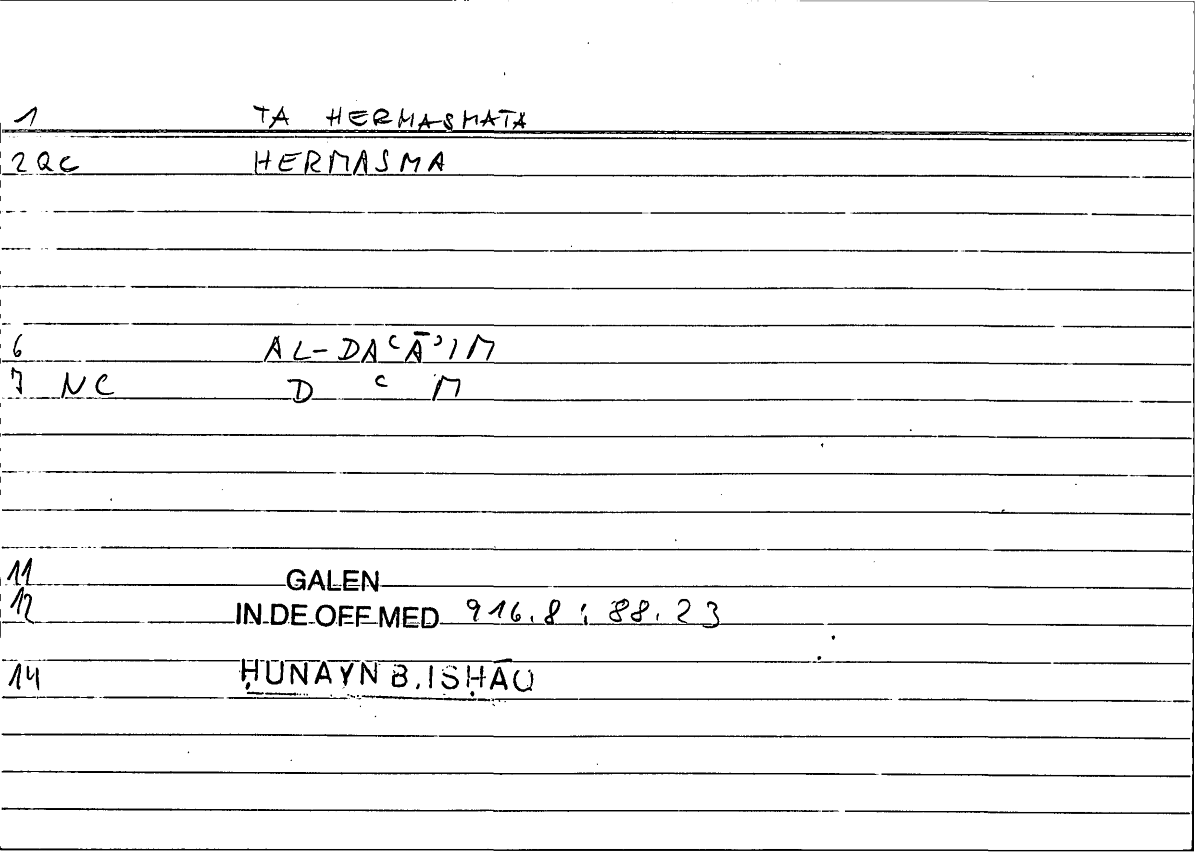 1 TA HERMASMATA
2 QC HERMASMA
6 AL-DAʿĀʾIM
7 NC D ʿ M
11 GALEN
12 IN DE OFF MED 916.8 : 88.23
14 ḤUNAYN B. ISḤĀQ